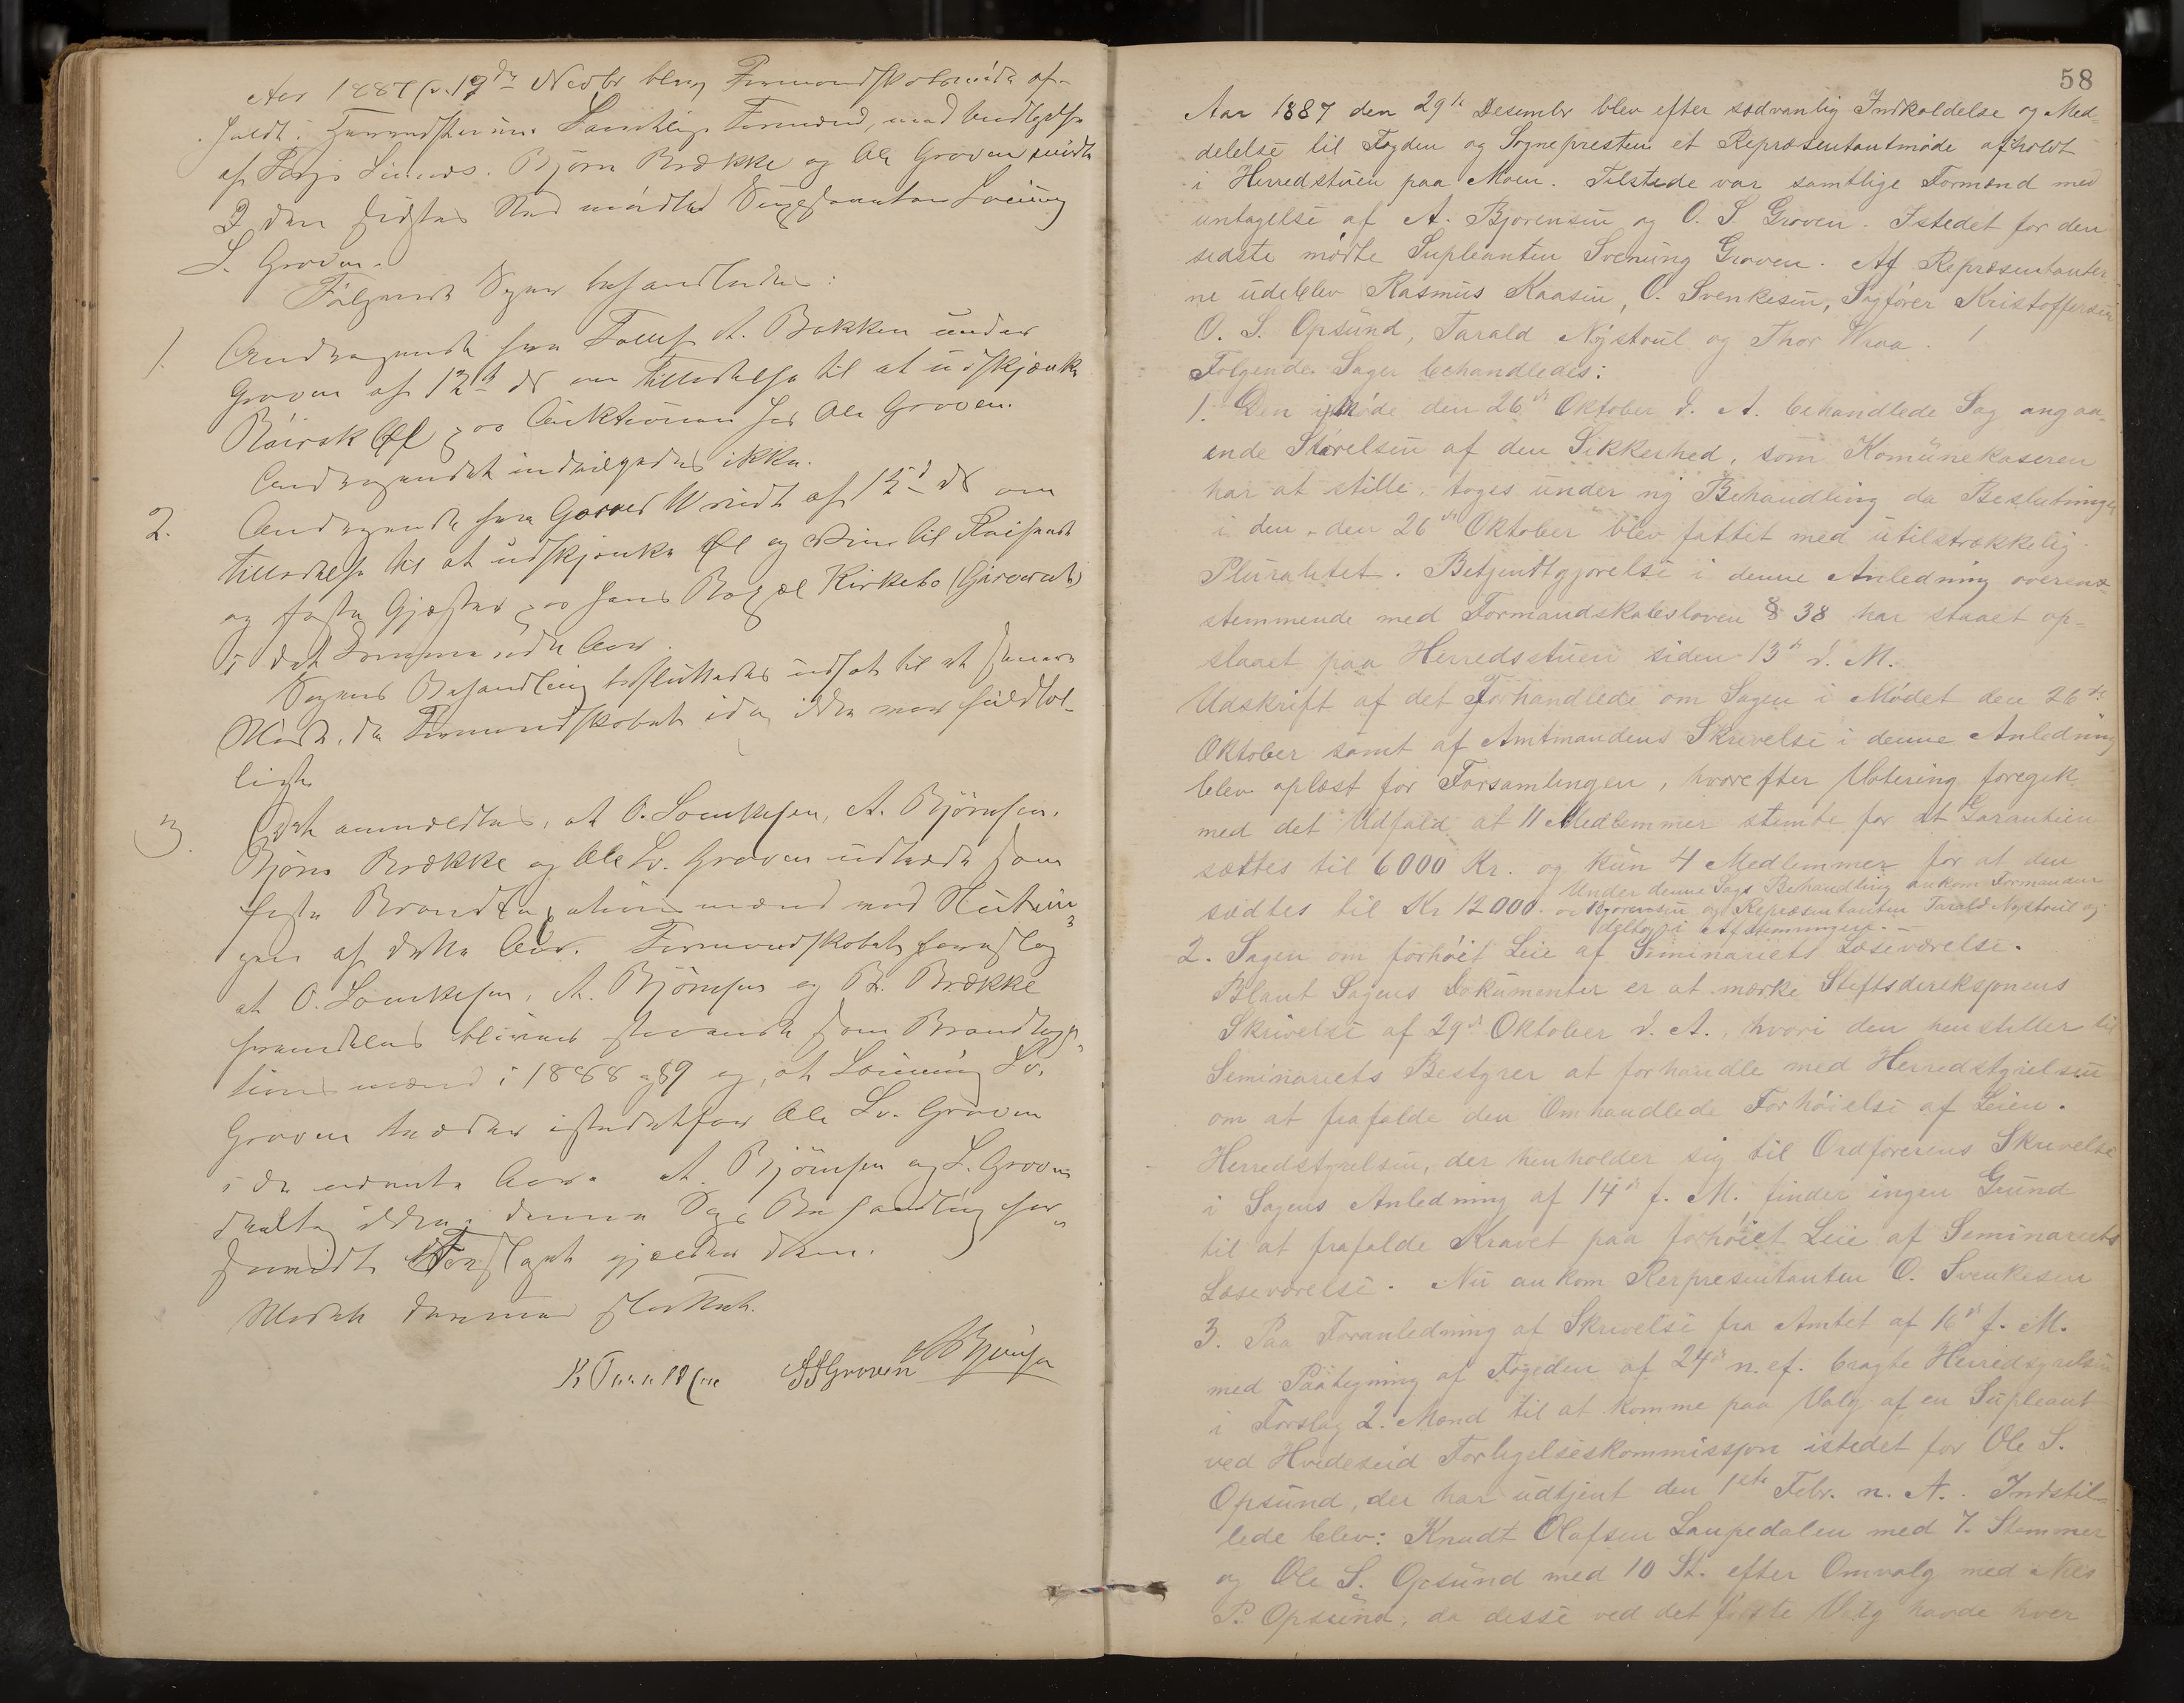 Aar 1887 d. 19de Novbr blev Formandskabsmøde af-
holdt i Herredstuen. Samtlige Formænd, med Undtagelse
af Bjørn Brække og Ole Groven mødte
I den sidstes Sted mødte Suppleanten Sveinung
S. Groven.
Følgende Sager behandledes:
1. Andragende fra A. Bakken under
Groven af 12te ds om Tilladelse til at udskjænke
Øl paa Auktionen hos Ole Groven.
Andragendet indvilgedes ikke.
2. Andragende fra af 15d ds om
Tilladelse til at udskjænke Øl og Vin til Reisende
og faste Gjæster paa hans Kirkebo
i det kommende Aar.
Sagens Behandling besluttedes udsat til et senere
Møde, da Formandskabet idag ikke var fuldtal-
ligt.
3. Det anmeldtes, at O. Svenkesen, A. Bjørnsen,
Bjørn Brække og Ole Sv. Groven udtræde som
faste mænd med Udgan-
gen af dette Aar. Formandskabet foreslog
at O. Svenkesen, A. Bjørnsen og B. Brække
fremdeles bliver staaende som Brandtaxa-
tionsmænd i 1888 og 89 og, at Sveinung Sv.
Groven træder istedetfor Ole Sv. Groven
i de nævnte Aar. A. Bjørnsen og S. Groven
deeltog ikke i denne Sags Behandling for-
saavidt Forslaget gjælder dem.
Mødet dermed sluttet.
SSGroven ABjørnsen
58
Aar 1887 den 29de Desembr blev efter sædvanlig Indkaldelse og Med-
delelse til Fogden og Sognepresten et Repræsentantmøde afholdt
i Herredstuen paa Moen. Tilstede var samtlige Formænd med
untagelse af A. Bjørensen og O. S. Groven. Istedet for den
sidste mødte Supleanten Svenung Groven. Af Repræsentanter-
ne udeblev Rasmus Kaasen, O. Svenkesen, Sagfører Kristoffersen
O. S. Opsund, Tarald Nystoul og Thor Wraa.
Følgende Sager behandledes:
1. Den i Møde den 26de Oktober d. A. behandlede Sag angaa-
ende Størelsen af den Sikkerhed, som Komunekaseren
har at stille, toges under ny Behandling da Beslutningen
i den. den 26de Oktober blev fattet med utilstrækkelig
Pluralitet. Betjendtgjørelse i denne Anledning overens-
stemmende med Formandskabsloven § 38 har staaet op-
slaaet paa Herredsstuen siden 13de d. M.
Udskrift af det Forhandlede om Sagen i Mødet den 26de
Oktober samt af Amtmandens Skrivelse i denne Anledning
blev oplæst for Forsamlingen, hvorefter Votering foregik
med det Udfald at 11 Medlemmer stemte for at Garantien
sættes til 6000 Kr. og kun 4 Medlemmer for at den
sædtes til Kr 12000. Under denne Sags Behandling ankom Formanden
Bjorensen og Repræsentanten Tarald Nystoul og
deltog i Afstemningen.
2. Sagen om forhøiet Leie af Seminariets Læseværelse.
Blant Sagens Dokumenter er at mærke Stiftsdireksjonens
Skrivelse af 29de Oktober d. A., hvori den henstiller til
Seminariets Bestyrer at forhandle med Herredstyrelsen
om at frafalde den Omhandlede Forhøielse af Leien.
Herredstyrelsen, der henholder sig til Ordførerens Skrivelse
i Sagens Anledning af 14de f. M., finder ingen Grund
til at frafalde Kravet paa forhøiet Leie af Seminariets
Læseværelse. Nu ankom Rerpresentanten O. Svenkesen
3. Paa Foranledning af Skrivelse fra Amtet af 16de f. M.
med Paategning af Fogeden af 24de n. ef. bragte Herredsyrelsen
i Forslag 2. Mænd til at komme paa Valg af en Supleant
ved Hvideseid Forligelseskommissjon istedet for Ole S.
Opsund, der har udtjent den 1ste Febr. n. A. Indstil-
lede blev: Knudt Olafsen Laupedalen med 7. Stemmer
og Ole S. Opsund med 10 St. efter Omvalg med Nils
P. Opsund, da desse ved det første Valg havde hver